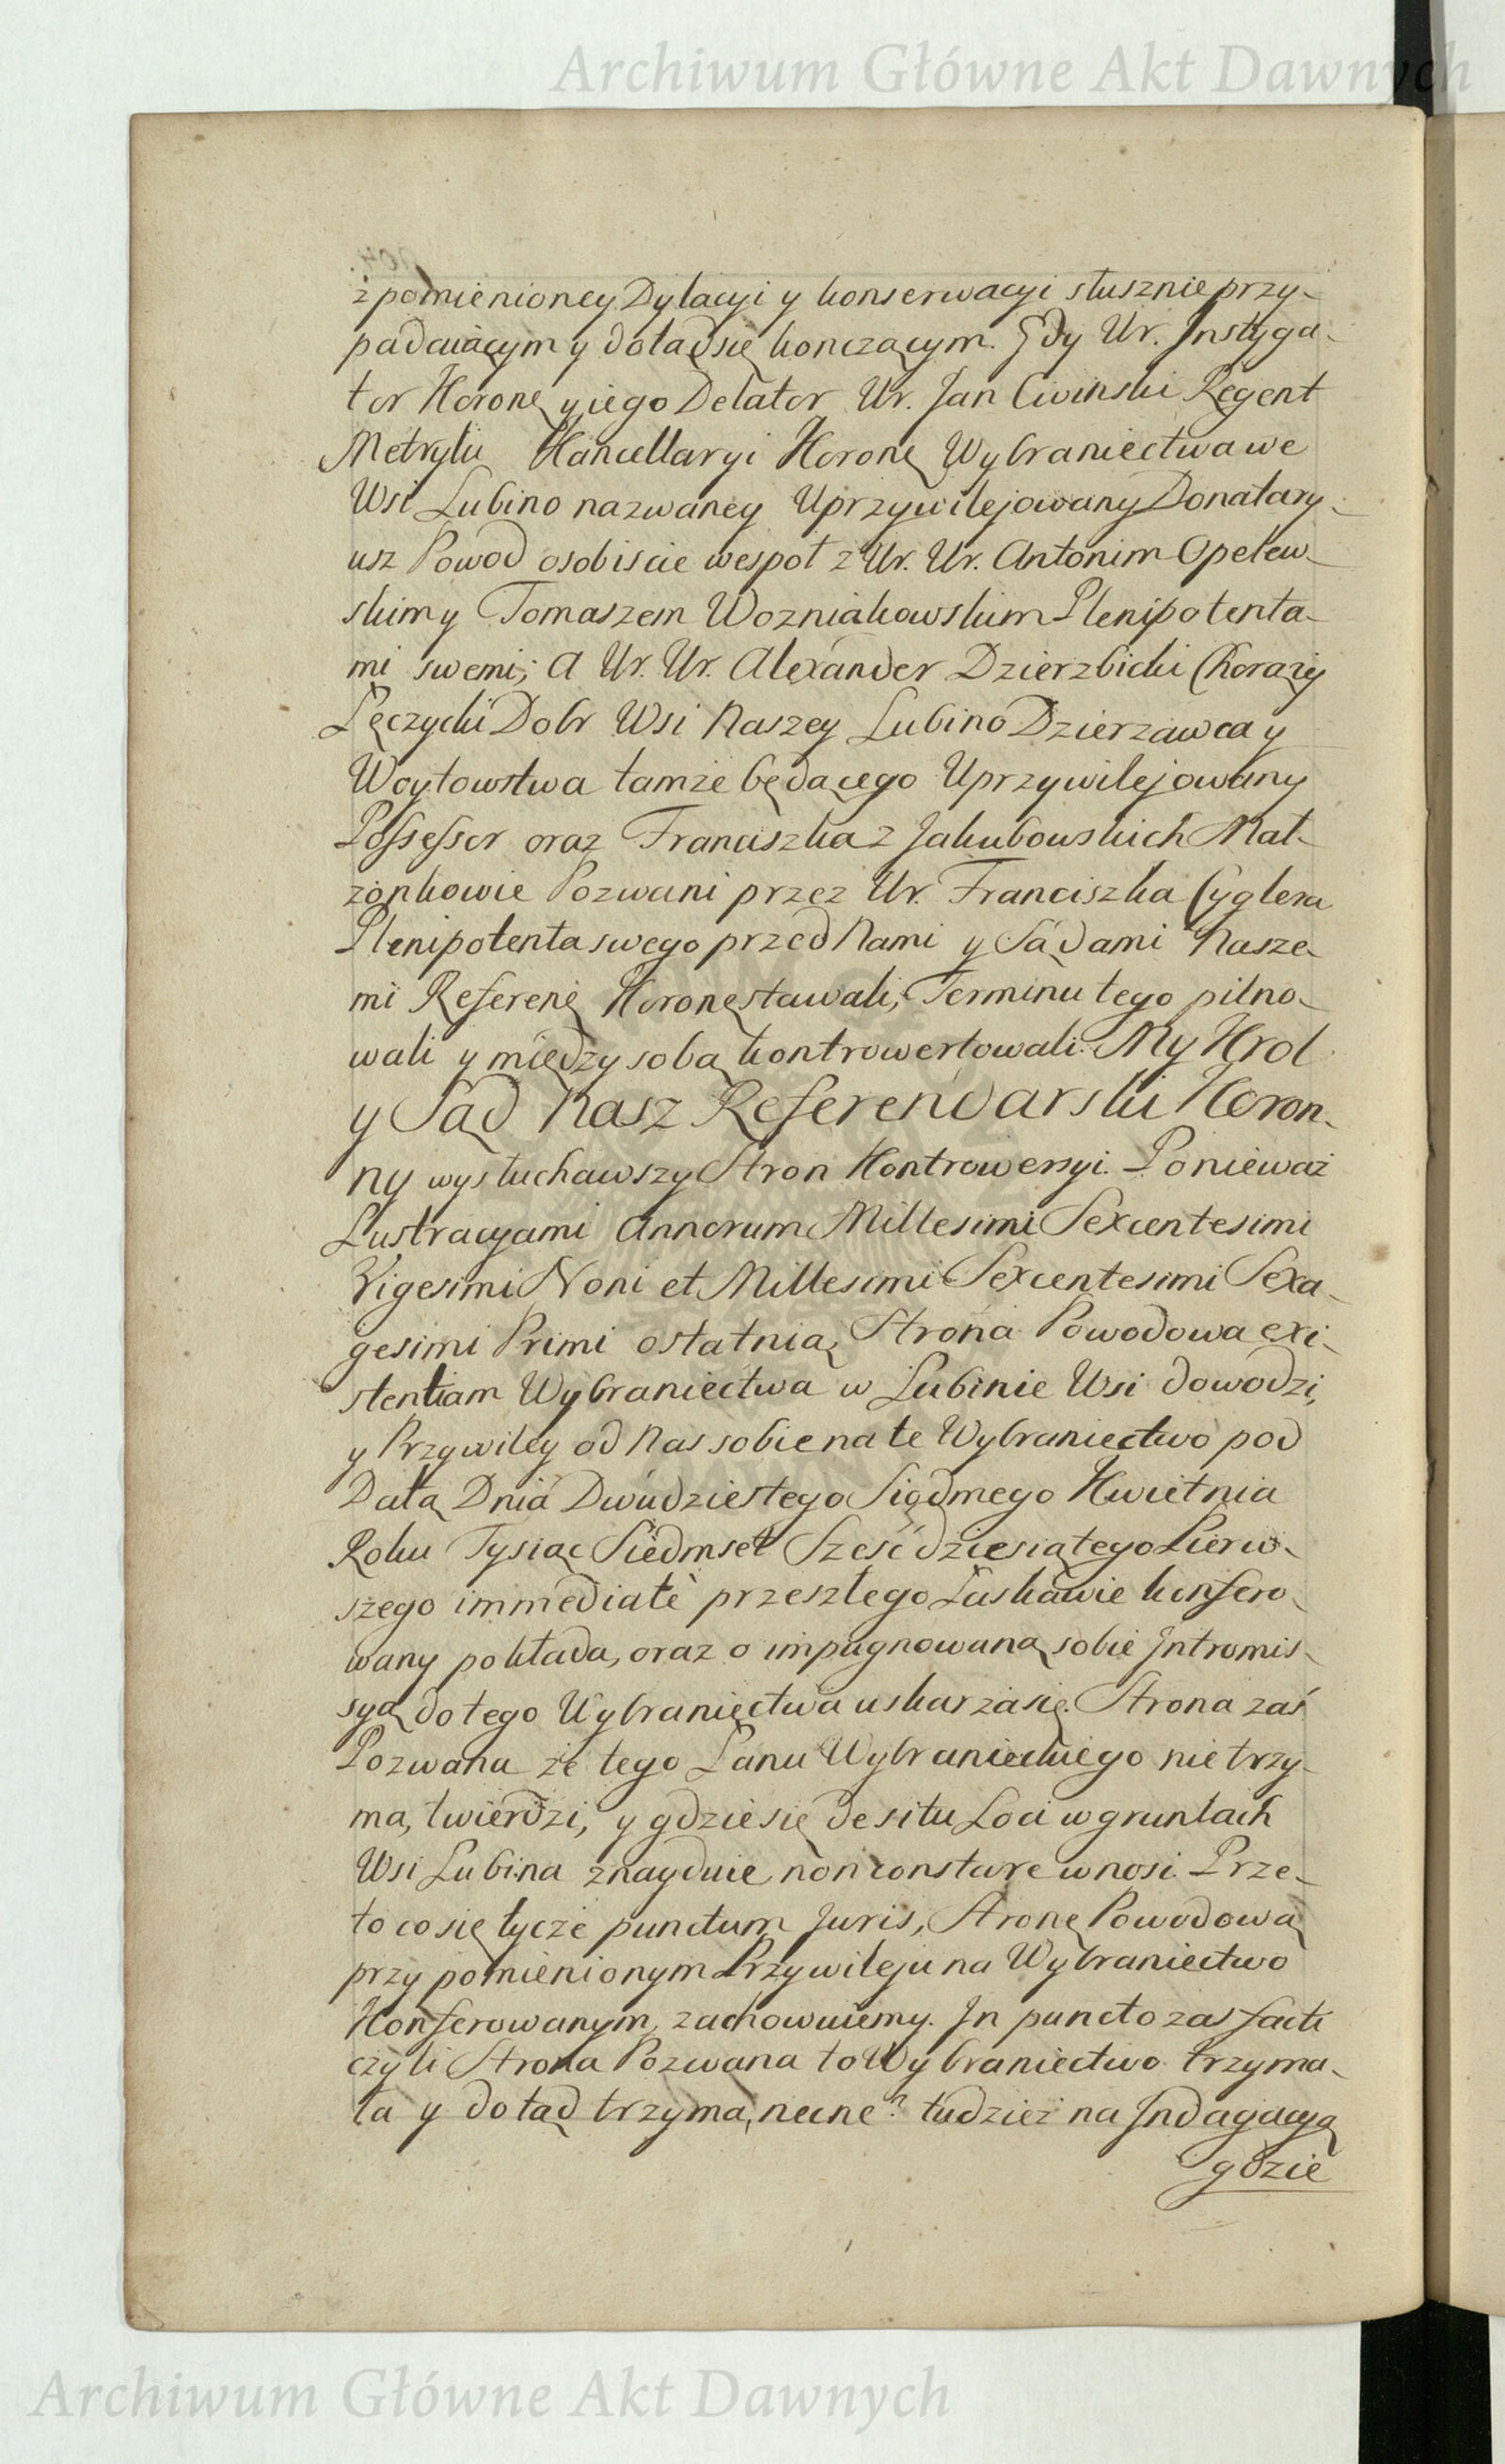 Archiwum Główne Akt Dawnych
z pomienioney Dylacyi y konserwacyi słusznie przy-
padaiącym y dotąd się konczącym. Gdy Ur. Instyga-
tor Koronę y iego Delator Ur. Jan Civinski Regent
Metryki Kancellaryi Koronę Wybraniectwa we
Wsi Lubino nazwaney Uprzywilejowany Donatary-
usz Powod osobiscie wespoł z Ur. Ur. Antonim Opelew-
skim y Tomaszem Wozniakowskim Plenipotenta-
mi swemi; a Ur. Ur. Alexander Dzierzbicki Chorąży
Lęczycki Dobr Wsi Naszey Lubino Dzierzawca y
Woytowstwa tamże będącego Uprzywilejowany
Possessor oraz Franciszka z Jakubowskich Mał-
żonkowie Pozwani przez Ur. Franciszka Cyglera
Plenipotenta swego przed Nami y Sądami Nasze-
mi Referenę Koronę stawali, Terminu tego pilno-
wali y między sobą kontrowertowali. My Krol
y Sąd Nasz Referendarski Koron-
ny wysłuchawszy Stron Kontrowersyi. Ponieważ
Lustracyami Annorum Millesimi Sexcentesimi
Vigesimi Noni et Millesimi Sexcentesimi Sexa-
gesimi Primi ostatnią, Strona Powodowa exi-
stentiam Wybraniectwa w Lubinie Wsi dowodzi,
y Przywiley od Nas sobie na te Wybraniectwo pod
Datą Dnia Dwudziestego Siodmego Kwietnia
Roku Tysiąc Siedmset Sześćdziesiątego Pierw-
szego immediatè przeszłego Łaskawie konfero-
wany pokłada, oraz o impugnowaną sobie Intromis-
syą do tego Wybraniectwa uskarza się. Strona zaś
Pozwana że tego Łanu Wybranieckiego nie trzy-
ma, twierdzi, y gdzie się de situ Loci w gruntach
Wsi Lubina znayduie, non constare wnosi. Prze-
to co się tycze punctum Juris, Stronę Powodową
przy pomienionym Przywileju na Wybraniectwo
Konferowanym, zachowuiemy. In puncto zas facti
czyli Strona Pozwana to Wybraniectwo trzyma-
ła y dotąd trzyma, necne? tudzież na Indagacyą
gdzie
Archiwum Główne Akt Dawnych